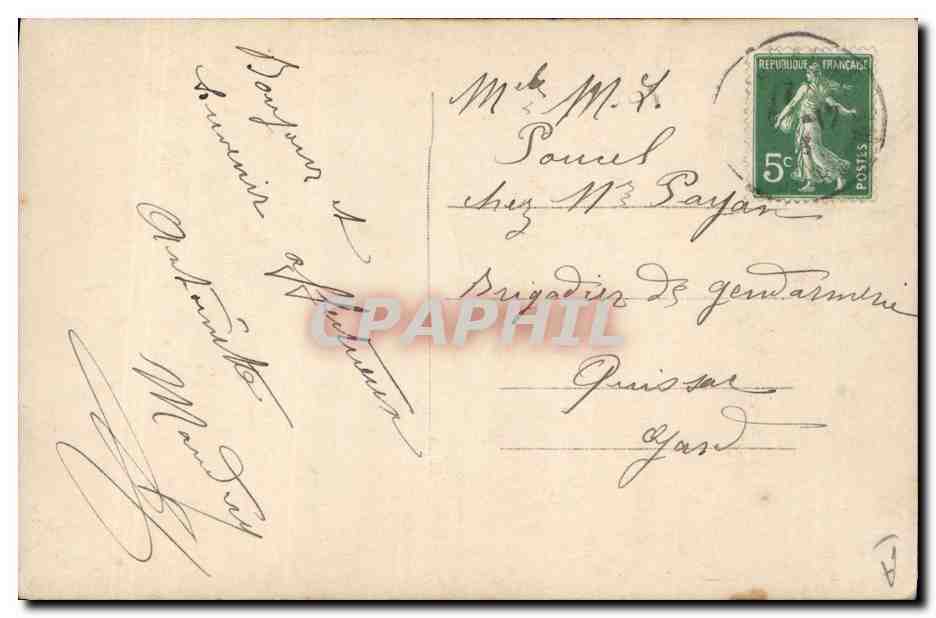 Bonjour et affectueux
Souvenir
Antoinette
Mlle M. L.
Poucel
chez Mr Payan
Brigadier de gendarmerie
Quissac
Gard
REPUBLIQUE FRANÇAISE
5c
POSTES
CPAPHIL